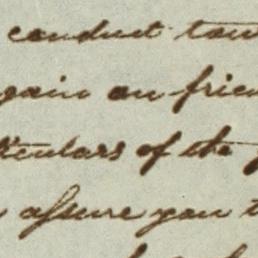 conduct tow
gain our frien
ticulars of the
assure you t